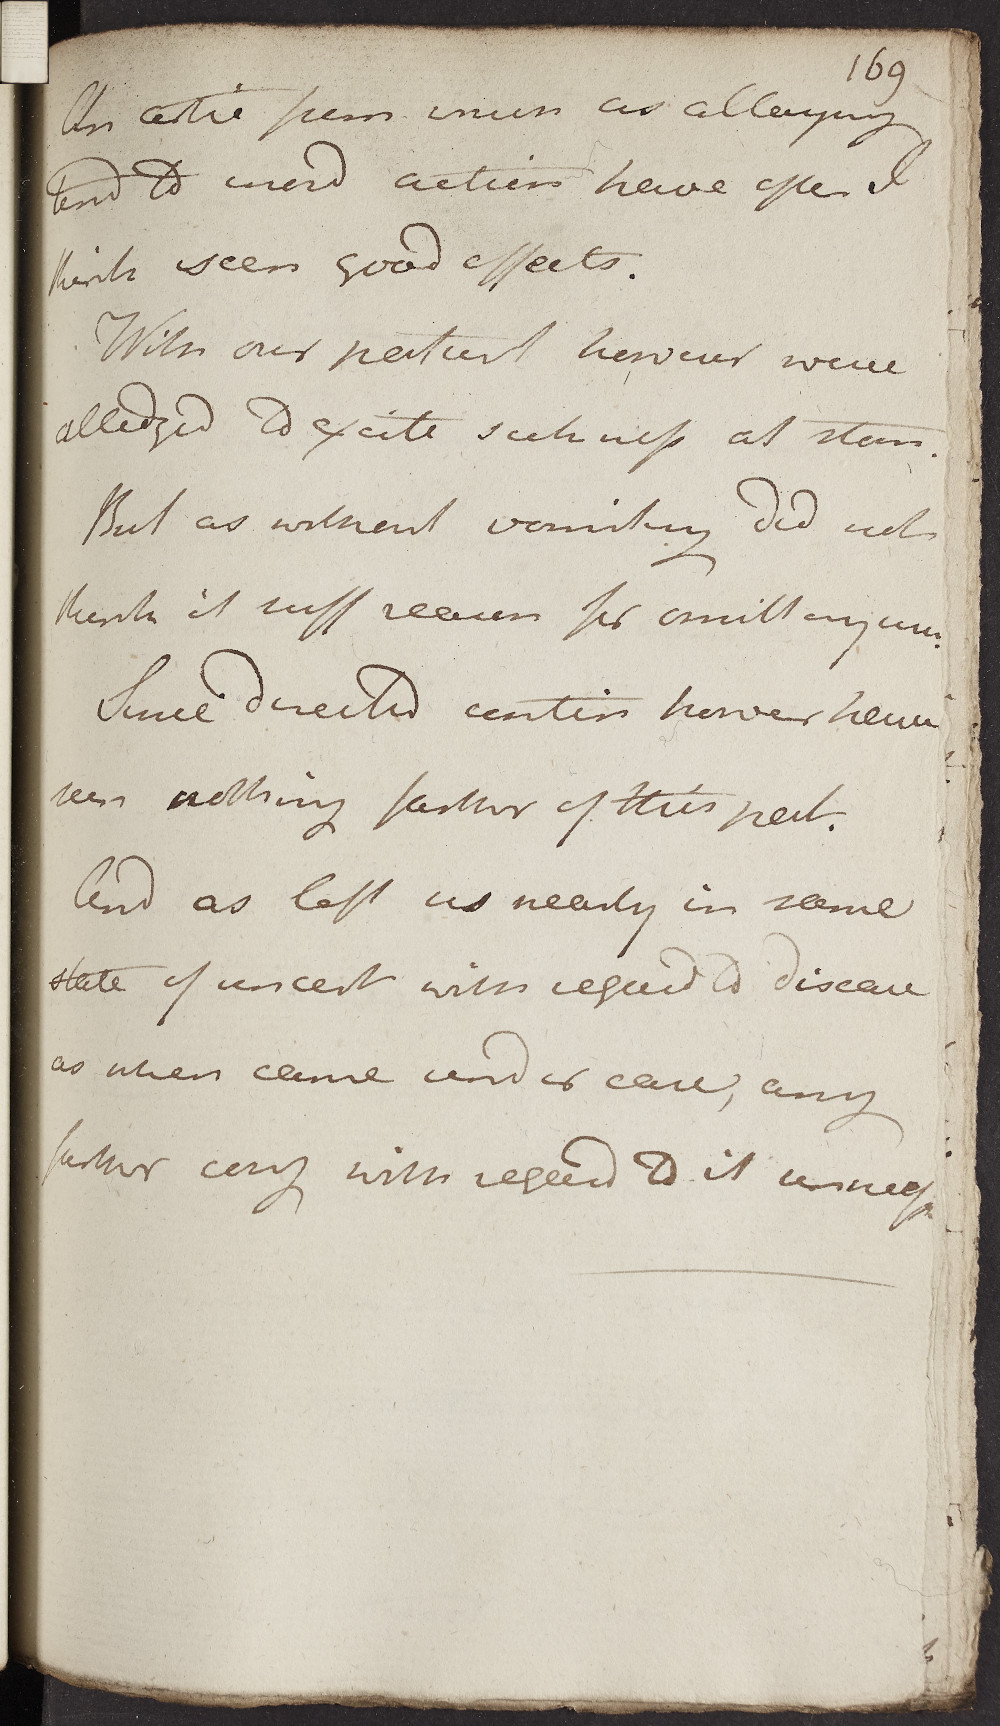 169
as allaying
tend to inord action have often I
think seen good effects.
With our patient however were
alledged to excite sickness at stom.
But as without vomiting did not
think it suff reason for omitting
Since directed contin however have
seen nothing farther of this pat.
And as left us nearly in same
state of uncert with regard to disease
as when came under care, any
farther conj with regard to it unnecess